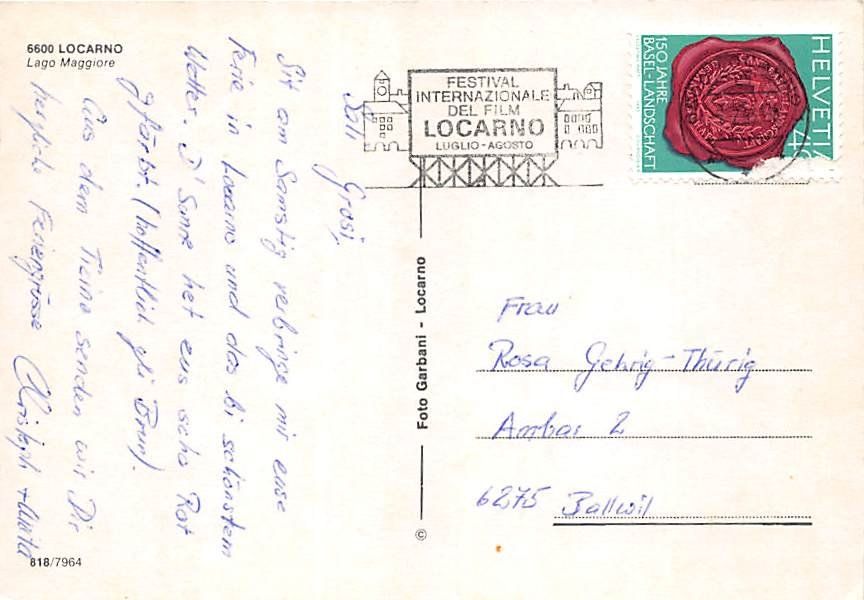 6600 LOCARNO
Lago Maggiore
Sali Grosi,
Sit am Samstig verbringe mir euse
Ferie in Locarno und das bi schönstem
Wetter. D'Sonne het eus scho Rot
gfärbt. (hoffentlich gli Brun).
Aus dem Ticino senden wir Dir
herzliche Feriengrüsse Christoph +
818/7964
Foto Garbani - Locarno
©
FESTIVAL
INTERNAZIONALE
DEL FILM
LOCARNO
LUGLIO-AGOSTO
150 JAHRE
BASEL-LANDSCHAFT
HELVETIA
Frau
Rosa Gehrig-Thürig
Ambar 2
6275 Ballwil